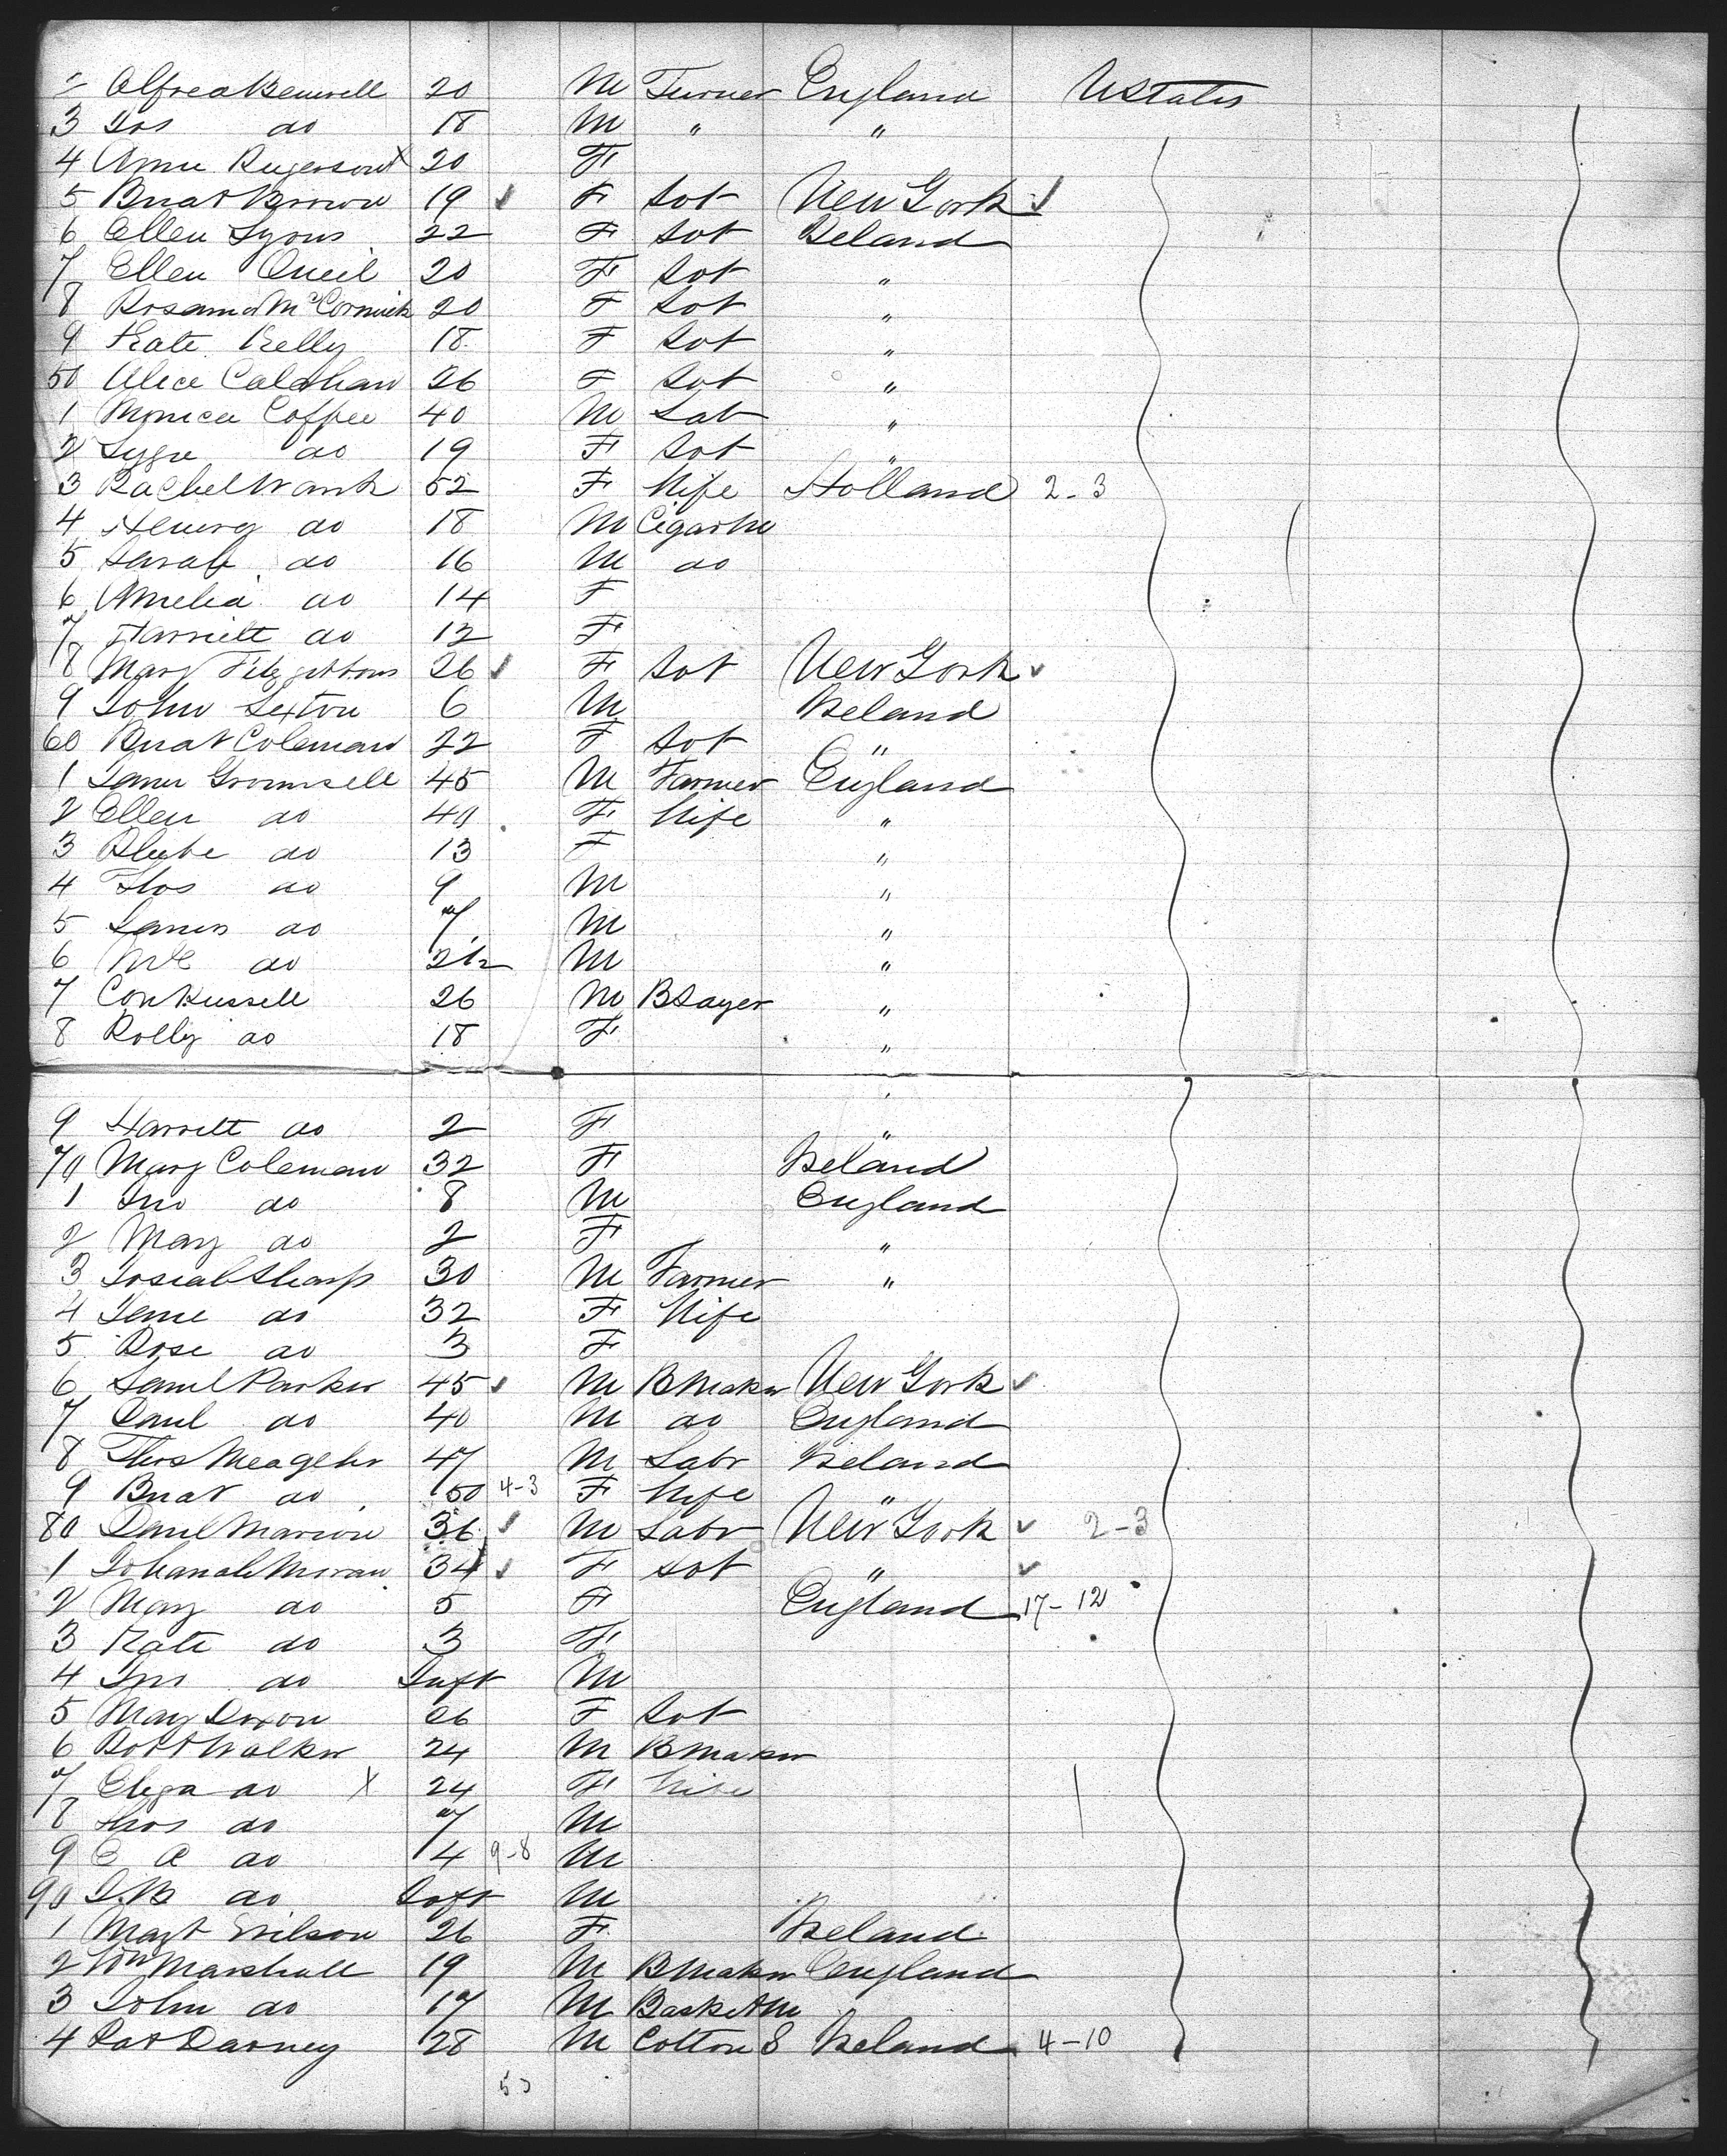 2 Alfred Bennell 20 M Turner England UStates
3 Jos do 18 M " "
4 Annie Rugerson X 20 F
5 Bridt Brown 19 ✓ F Spt New York ✓
6 Ellen Lyons 22 F Spt Ireland
7 Ellen Oneil 20 F Spt "
8 Rosannah McCormick 20 F Spt "
9 Kate Kelly 18 F Spt "
50 Alice Calahan 26 F Spt "
1 Coffee 40 M Lab "
2 do 19 F Spt "
3 Rachel Wank 52 F Wife Holland 2-3
4 Henery do 18 M CigarM
5 Sarah do 16 M do
6 Amelia do 14 F
7 Harriett do 12 F
8 Mary Fitzgibbons 26 ✓ F Spt New York ✓
9 John Sexton 6 M Ireland
60 Bridt Coleman 22 F Spt "
1 James Grounsell 45 M Farmer England
2 Ellen do 40 F Wife "
3 do 13 F "
4 Thos do 9 M "
5 James do 7 M "
6 do 2 1/2 M "
7 Con Russell 26 M BLayer "
8 Polly do 18 F "
9 Harriett do 2 F "
70 Mary Coleman 32 F Ireland
1 Jno do 8 M England
2 Mary do 2 F "
3 Josiah Sharp 30 M Farmer "
4 Jane do 32 F Wife
5 Rose do 3 F
6 Saml Parker 45 ✓ M BMaker New York ✓
7 Danl do 40 M do England
8 Thos Meagher 47 M Labr Ireland
9 Bridt do 50 4-3 F Wife "
80 Danl Marion 36 ✓ M Labr New York ✓ 2-3
1 Johanah Moran 34 ✓ F Spt " ✓
2 Mary do 5 F England 17-12
3 Kate do 3 F
4 Jno do Inft M
5 May Dixon 26 F Spt
6 Robt Walker 24 M BMaker
7 Eliza do X 24 F Wife
8 Thos do 7 M
9 C A do 4 9-8 M
90 J.B do Inft M
1 Magt Wilson 26 F Ireland
2 Wm Marshall 19 M BMaker England
3 John do 17 M BasketM
4 Pat Darney 28 M Cotton S Ireland 4-10